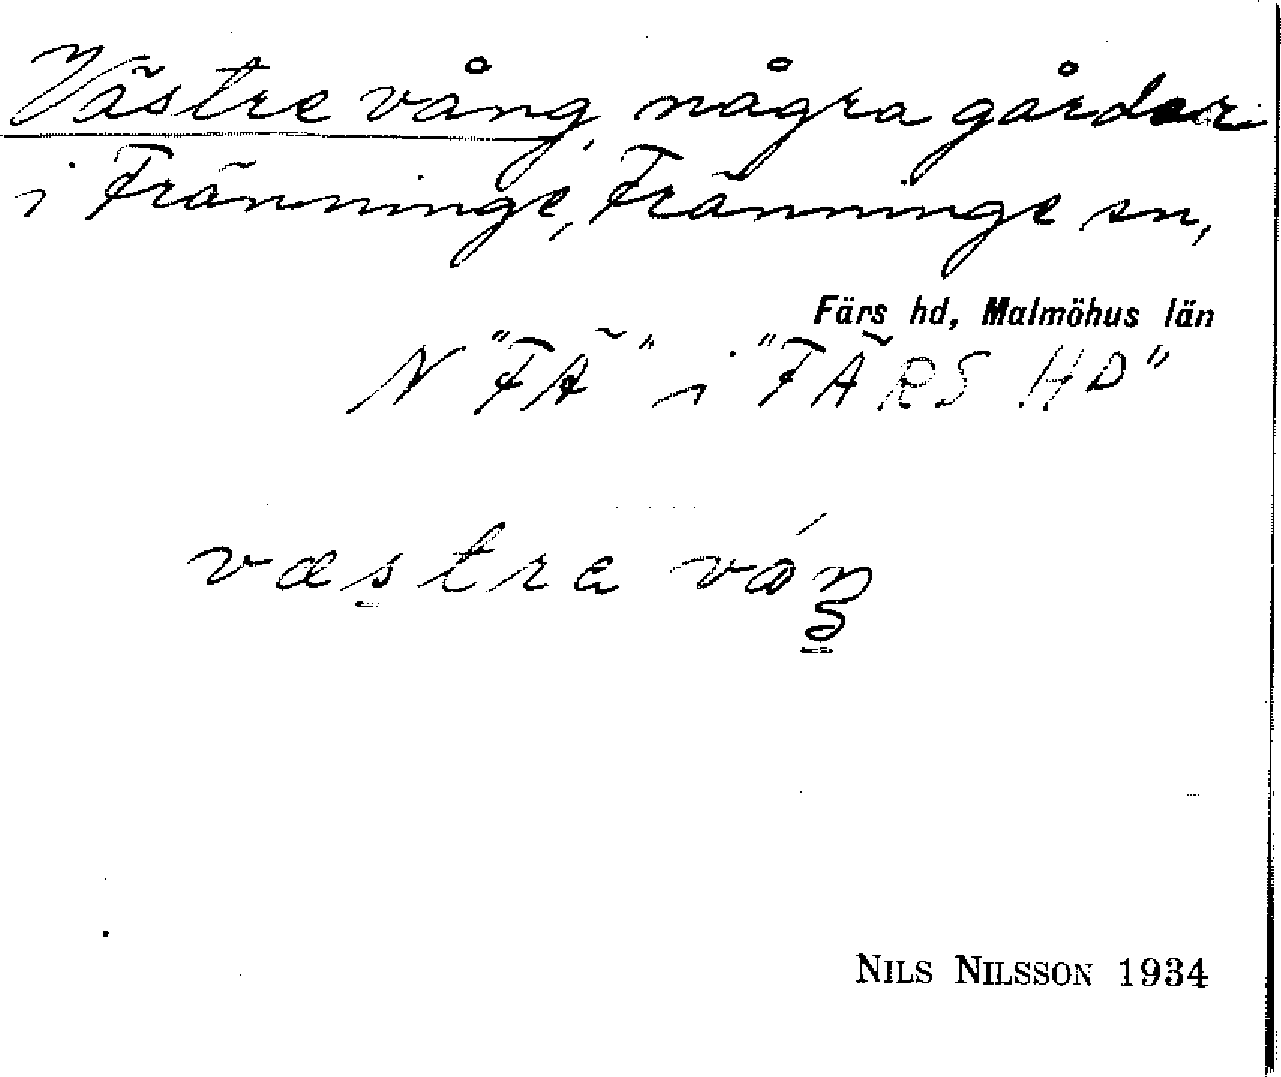 Västre vång, några gårdar
i Fränninge, Fränninge sn,
Färs hd, Malmöhus län
N "FÄ" i "FÄRS HD"
væstra våŋ
NILS NILSSON 1934